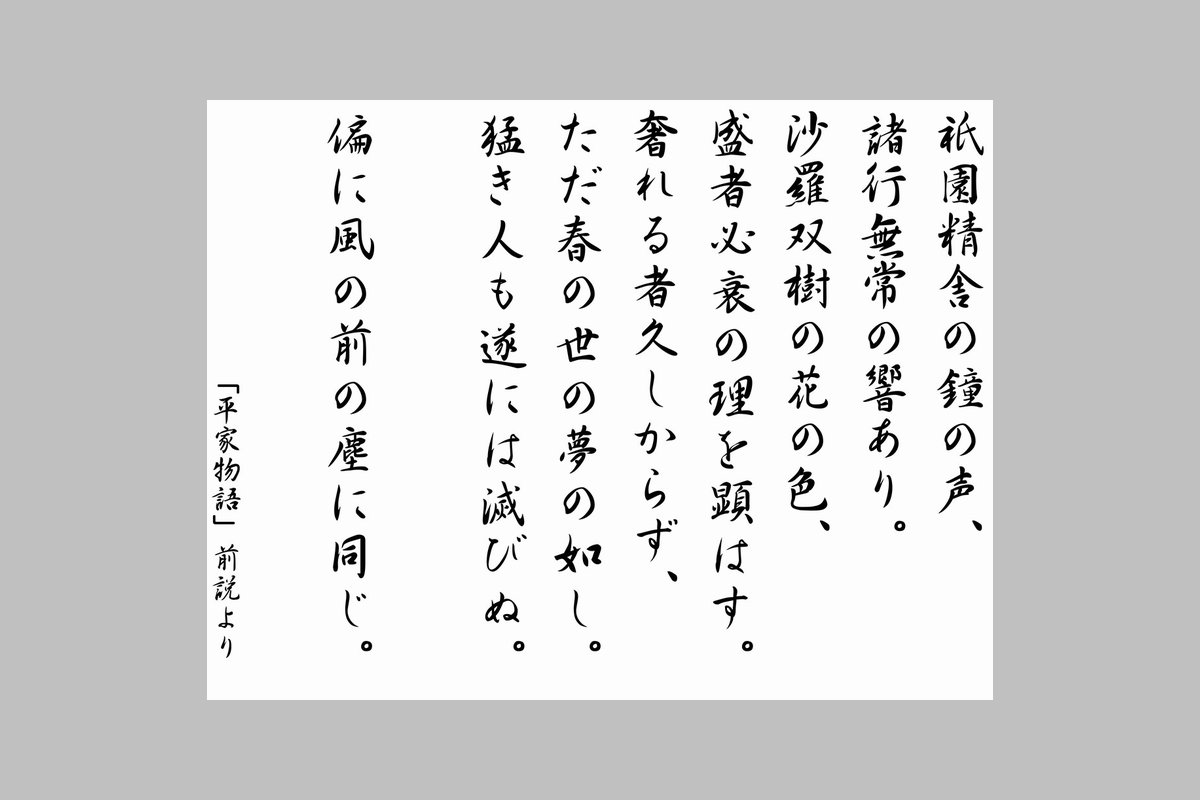 祇園精舎の鐘の声、
諸行無常の響あり。
沙羅双樹の花の色、
盛者必衰の理を顕はす。
奢れる者久しからず、
ただ春の世の夢の如し。
猛き人も遂には滅びぬ。
偏に風の前の塵に同じ。
「平家物語」前説より